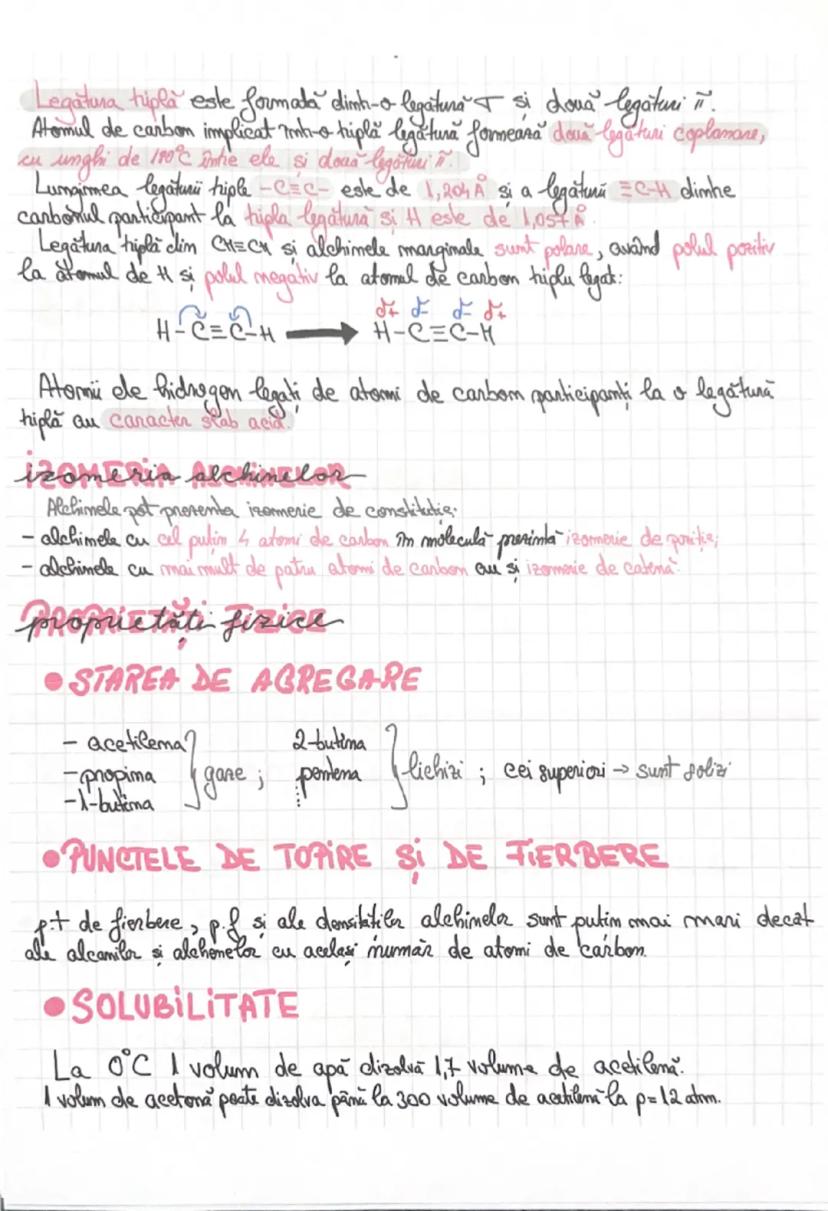 Legătura triplă este formată dintr-o legătură σ și două legături π.
Atomul de carbon implicat într-o triplă legătură formează două legături coplanare,
cu unghi de 180°C între ele și două legături π.
Lungimea legăturii triple -C≡C- este de 1,204 Å și a legăturii ≡C-H dintre
carbonul participant la tripla legătură și H este de 1,057 Å.
Legătura triplă din CH≡CH și alchinele marginale sunt polare, având polul pozitiv
la atomul de H și polul negativ la atomul de carbon triplu legat:
δ+ δ- δ- δ+
H-C≡C-H → H-C≡C-H
Atomii de hidrogen legați de atomi de carbon participanți la o legătură
triplă au caracter slab acid.
izomeria alchinelor
Alchinele pot prezenta izomerie de constituție:
- alchinele cu cel puțin 4 atomi de carbon în moleculă prezintă izomerie de poziție;
- alchinele cu mai mult de patru atomi de carbon au și izomerie de catenă.
proprietăți fizice
• STAREA DE AGREGARE
- acetilena 2-butina
- propina } gaze ; pentena } lichizi ; cei superiori → sunt solizi
- 1-butina
• PUNCTELE DE TOPIRE Și DE FIERBERE
p.t de fierbere, p.f și ale densitatilor alchinelor sunt puțin mai mari decât
ale alcanilor și alchenelor cu același număr de atomi de carbon.
• SOLUBILITATE
La 0°C 1 volum de apă dizolvă 1,7 volume de acetilenă.
1 volum de acetonă poate dizolva până la 300 volume de acetilenă la p=12 atm.